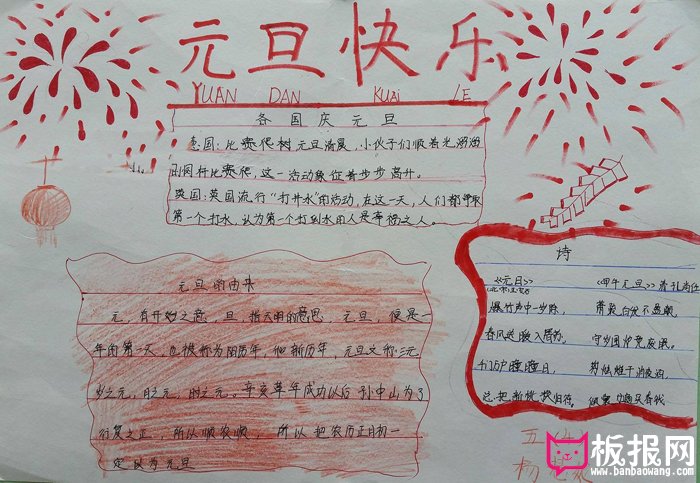 元旦快乐
YUAN DAN KUAI LE
各国庆元旦
意国：比赛爬树元旦清晨，小伙子们顺着光溜溜
的图杆比赛爬，这一活动象征着步步高升。
英国：英国流行“打井水”的活动，在这一天，人们都争取
第一个打水，认为第一个打到水的人是幸福之人。
元旦的由来
元，有开始之意，旦，指天明的意思，元旦，便是一
年的第一天，也被称为阳历年，他新历年，元旦又称：三元，
岁之元，月之元，时之元。辛亥革年成功以后孙中山为了
行夏之正，所以顺农顺，所以把农历正月初一
定
元旦
诗
《元日》
爆竹声中一岁除，
春风送暖入屠苏，
千门万户曈曈日，
总把新桃换旧符。
《甲午元旦》 清 孔尚任
萧疏白发不盈颠，
五
杨
板报网
www.banbaowang.com